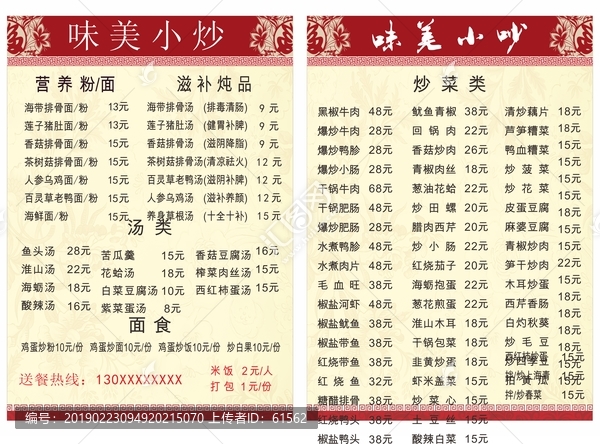 味美小炒
营养粉/面 滋补炖品
海带排骨面/粉 13元 海带排骨汤 (排毒清肠) 9元
莲子猪肚面/粉 15元 莲子猪肚汤 (健胃补脾) 9元
香菇排骨面/粉 15元 香菇排骨汤 (滋阴降脂) 9元
茶树菇排骨面/粉 15元 茶树菇排骨汤 (清凉祛火) 12元
人参乌鸡面/粉 15元 百灵草老鸭汤 (滋阴补肾) 12元
百灵草老鸭面/粉 15元 人参乌鸡汤 (滋补养颜) 12元
海鲜面/粉 15元 养身草根汤 (十全十补) 15元
汤类
鱼头汤 28元 苦瓜羹 15元 香菇豆腐汤 16元
淮山汤 22元 花蛤汤 18元 榨菜肉丝汤 15元
海蛎汤 18元 白菜豆腐汤 10元 西红柿蛋汤 15元
酸辣汤 16元 紫菜蛋汤 8元
面食
鸡蛋炒粉10元/份 鸡蛋炒面10元/份 鸡蛋炒饭10元/份 炒白果10元/份
送餐热线：130XXXXXXXX
米饭 2元/人
打包 1元/份
味美小炒
炒菜类
黑椒牛肉 48元 鱿鱼青椒 38元 清炒藕片 18元
爆炒牛肉 48元 回锅肉 22元 芦笋糟菜 18元
爆炒鸭胗 38元 香菇炒肉 26元 鸭血糟菜 15元
爆炒小肠 38元 青椒肉丝 18元 炒菠菜 15元
干锅牛肉 68元 葱油花蛤 22元 炒花菜 15元
干锅肥肠 48元 炒田螺 20元 皮蛋豆腐 18元
爆炒肥肠 48元 腊肉西芹 28元 麻婆豆腐 15元
水煮鸭胗 48元 炒小肠 22元 青椒炒肉 15元
水煮肉片 48元 红烧茄子 20元 笋干炒肉 22元
毛血旺 38元 海蛎豆腐 22元 西芹香肠 18元
椒盐河虾 48元 葱花煎蛋 22元 白灼秋葵 18元
椒盐鱿鱼 38元 淮山木耳 18元 炒毛豆 18元
椒盐带鱼 38元 干锅包菜 18元
红烧带鱼 38元 韭黄炒蛋 18元 炒四季豆 15元
西红柿炒蛋 15元
红烧鱼 32元 虾米盖菜 15元 拍黄瓜 15元
拌/炒上海青
糖醋排骨 38元 炒菜心 15元 拌/炒春菜 15元
红烧鸭头 38元 土豆丝 15元
椒盐鸭头 38元 酸辣白菜 15元
编号：20190223094920215070 上传者ID：61562